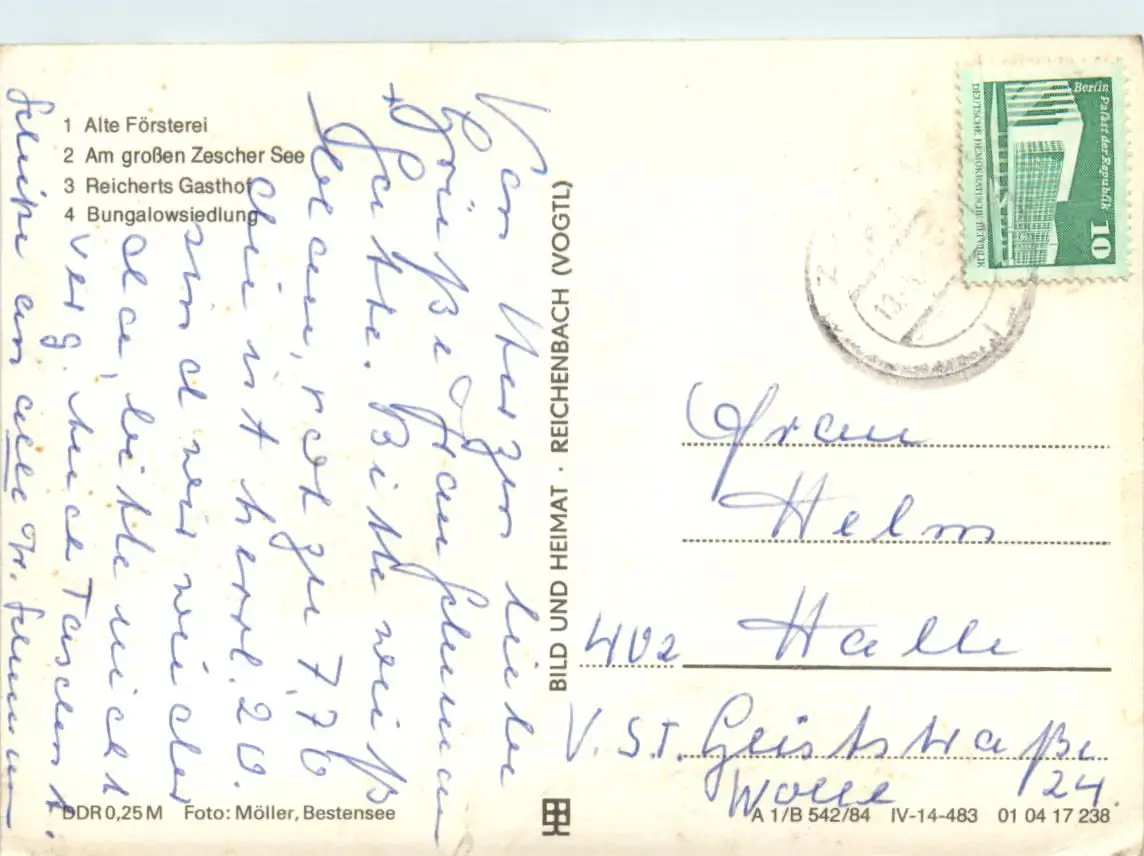 1 Alte Försterei
2 Am großen Zescher See
3 Reicherts Gasthof
4 Bungalowsiedlung
Von Herzen liebe
Grüße Frau
+ Gatte. Bitte weiß
blau, rot zu 7,70
ist herrl. 20.
sind wir wieder
da, bitte nicht
verg. Taschent.
an alle Fr.
DDR 0,25 M Foto: Möller, Bestensee
BILD UND HEIMAT · REICHENBACH (VOGTL)
Berlin
Palast der Republik
10
DEUTSCHE DEMOKRATISCHE REPUBLIK
Frau
Helm
402 Halle
V. S.T. Geiststraße
Wolle 24.
A 1/B 542/84 IV-14-483 01 04 17 238